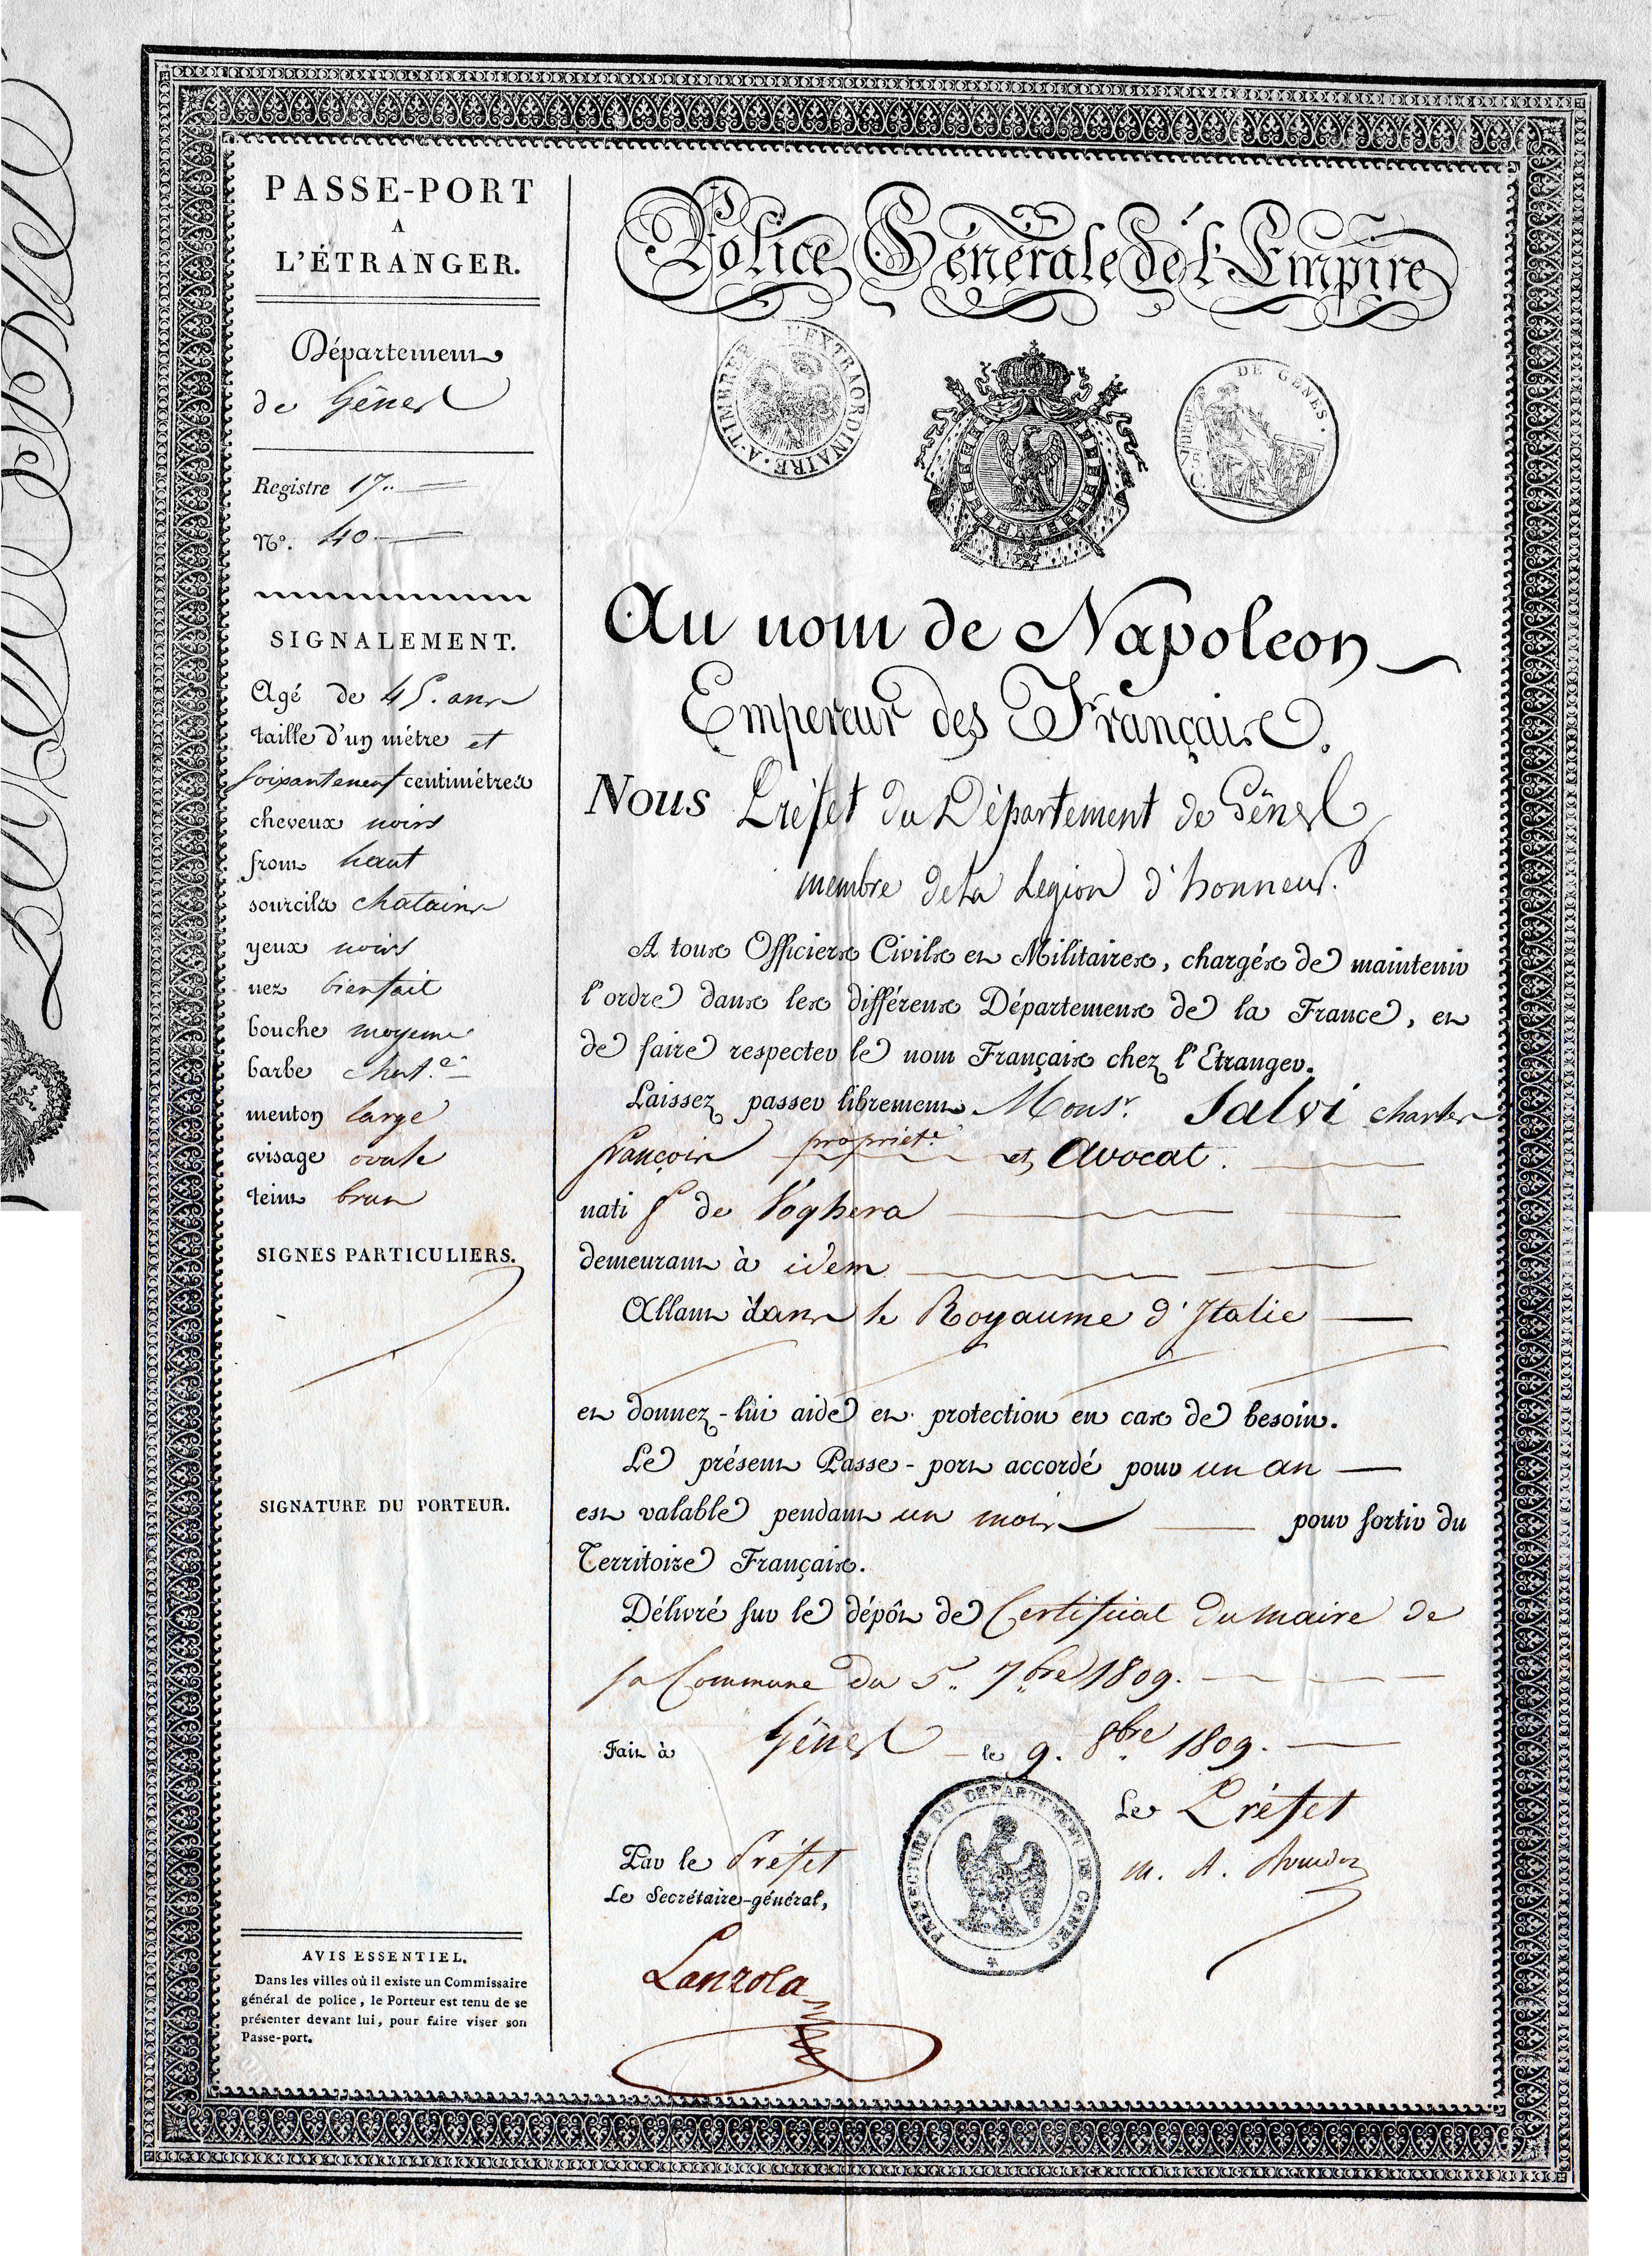 PASSE-PORT
A
L'ÉTRANGER.
Département
de Gênes
Registre 17..
N°. 40
SIGNALEMENT.
Agé de 45. ans
taille d'un mètre et
soixanteneuf centimètres
cheveux noirs
front haut
sourcils chatains
yeux noirs
nez bienfait
bouche moyenne
barbe chat.e
menton large
visage ovale
teint brun
SIGNES PARTICULIERS.
SIGNATURE DU PORTEUR.
AVIS ESSENTIEL.
Dans les villes où il existe un Commissaire
général de police, le Porteur est tenu de se
présenter devant lui, pour faire viser son
Passe-port.
Police Générale de l'Empire
A TIMBRER L'EXTRAORDINAIRE
DE GENES.
Au nom de Napoleon
Empereur des Français.
Nous Préfet du Département de Gênes
membre de la Legion d'honneur.
A tous Officiers Civils et Militaires, chargés de maintenir
l'ordre dans les différens Départemens de la France, et
de faire respecter le nom Français chez l'Etranger.
Laissez passer librement Monsr. Salvi charles
françois propriét.e et Avocat.
natif de Voghera
demeurant à idem
Allant dans le Royaume d'Italie
et donnez-lui aide et protection en cas de besoin.
Le présent Passe-port accordé pour un an
est valable pendant un mois pour sortir du
Territoire Français.
Délivré sur le dépôt de Certificat du maire de
sa Commune du 5.. 7bre 1809.
Fait à Gênes le 9. 8bre 1809.
Le Préfet
Par le Préfet
Le Secrétaire-général,
PREFECTURE DU DEPARTEMENT DE GENES
M. A. Bourdon
Lanzola